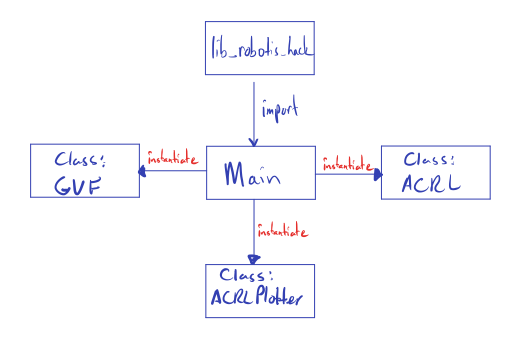 lib_robotis_hack
import
Class:
GVF
instantiate
Main
instantiate
Class:
ACRL
instantiate
Class:
ACRLPlotter